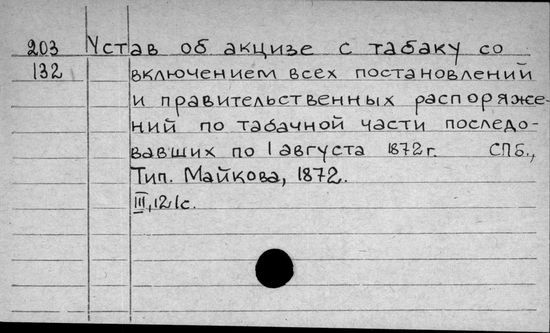 203 Устав об акцизе с табаку со
132 включением всех постановлений
и правительственных распоряже-
ний по табачной части последо-
вавших по 1 августа 1872 г. СПБ.,
Тип. Майкова, 1872.
III, 121с.